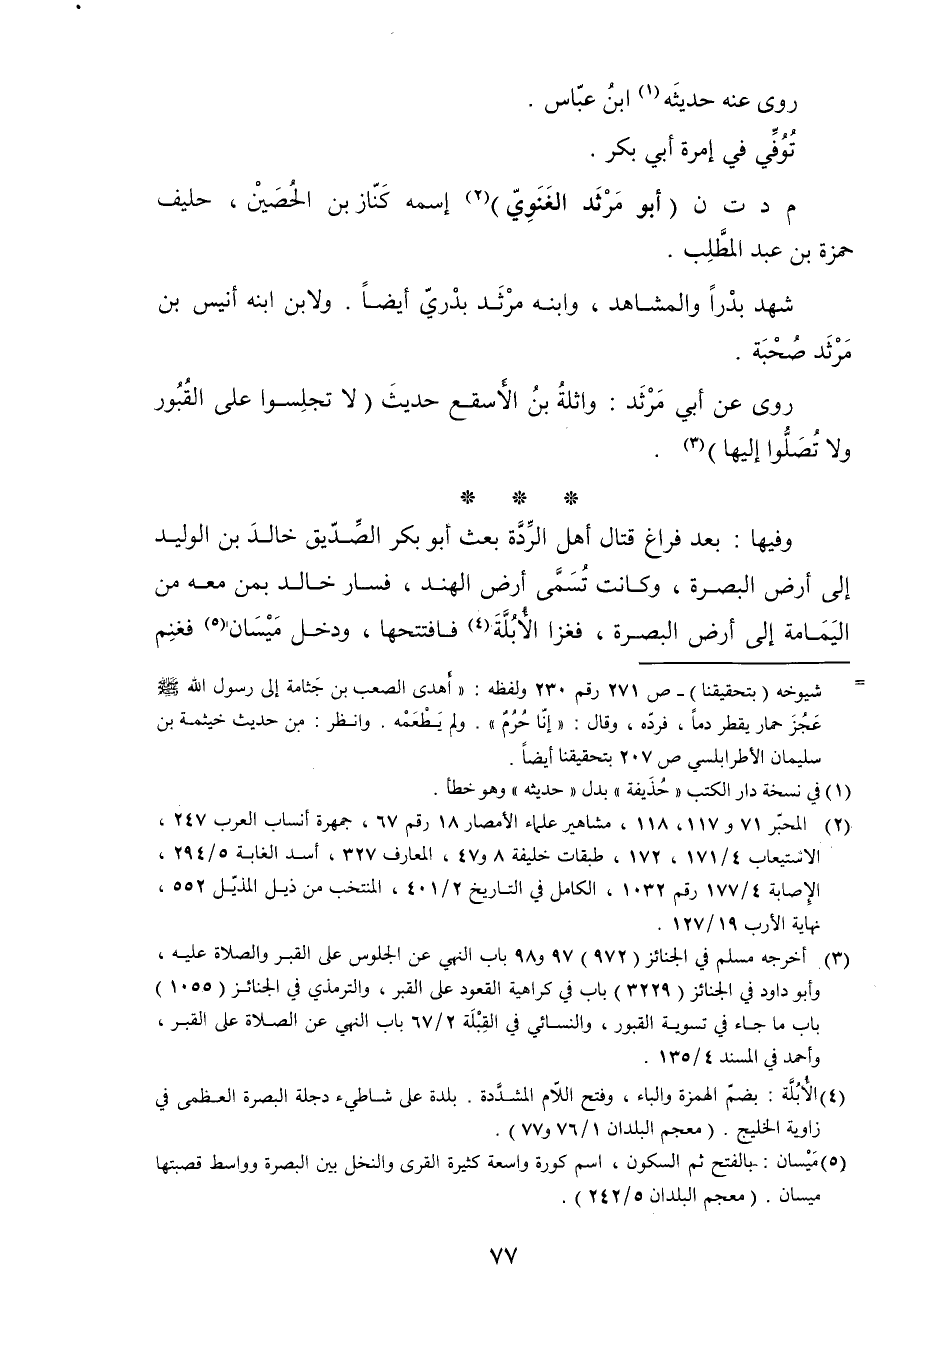 روى عنه حديثَه(١) ابنُ عبّاس .
تُوُفِّي في إمرة أبي بكر .
م د ت ن ( أبو مَرْثَد الغَنَوِيّ )(٢) إسمه كَنّاز بن الحُصَيْن ، حليف
حمزة بن عبد المطَّلِب .
شهد بدْراً والمشاهد ، وابنه مرْثَد بدْريّ أيضاً . ولابن ابنه أنيس بن
مَرْثَد صُحْبَة .
روى عن أبي مَرْثَد : واثلةُ بنُ الأسقع حديثَ ( لا تجلِسوا على القُبُور
ولا تُصَلُّوا إليها )(٣) .
* * *
وفيها : بعد فراغ قتال أهل الرِّدَّة بعث أبو بكر الصِّدّيق خالدَ بن الوليد
إلى أرض البصرة ، وكانت تُسَمَّى أرض الهند ، فسار خالد بمن معه من
اليَمَامة إلى أرض البصرة ، فغزا الأُبُلَّة(٤) فافتتحها ، ودخل مَيْسَان(٥) فغنِم
= شيوخه ( بتحقيقنا ) ـ ص ٢٧١ رقم ٢٣٠ ولفظه : « أهدى الصعب بن جَثامة إلى رسول الله ﷺ
عَجُزَ حمار يقطر دماً ، فردّه ، وقال : « إنّا حُرُمٌ » . ولم يَطْعَمْه . وانظر : من حديث خيثمة بن
سليمان الأطرابلسي ص ٢٠٧ بتحقيقنا أيضاً .
(١) في نسخة دار الكتب « حُذَيفة » بدل « حديثه » وهو خطأ .
(٢) المحبّر ٧١ و ١١٧، ١١٨ ، مشاهير علماء الأمصار ١٨ رقم ٦٧ ، جمهرة أنساب العرب ٢٤٧ ،
الاستيعاب ٤/ ١٧١ ، ١٧٢ ، طبقات خليفة ٨ و٤٧ ، المعارف ٣٢٧ ، أسد الغابة ٥/ ٢٩٤ ،
الإصابة ٤/ ١٧٧ رقم ١٠٣٢ ، الكامل في التاريخ ٢/ ٤٠١ ، المنتخب من ذيل المذيّل ٥٥٢ ،
نهاية الأرب ١٩/ ١٢٧ .
(٣) أخرجه مسلم في الجنائز ( ٩٧٢ ) ٩٧ و٩٨ باب النهي عن الجلوس على القبر والصلاة عليه ،
وأبو داود في الجنائز ( ٣٢٢٩ ) باب في كراهية القعود على القبر ، والترمذي في الجنائز ( ١٠٥٥ )
باب ما جاء في تسوية القبور ، والنسائي في القِبْلَة ٢/ ٦٧ باب النهي عن الصلاة على القبر ،
وأحمد في المسند ٤/ ١٣٥ .
(٤) الأُبُلَّة : بضمّ الهمزة والباء ، وفتح اللّام المشدَّدة . بلدة على شاطىء دجلة البصرة العظمى في
زاوية الخليج . ( معجم البلدان ١/ ٧٦ و٧٧ ) .
(٥) مَيْسان : بالفتح ثم السكون ، اسم كورة واسعة كثيرة القرى والنخل بين البصرة وواسط قصبتها
ميسان . ( معجم البلدان ٥/ ٢٤٢ ) .
٧٧